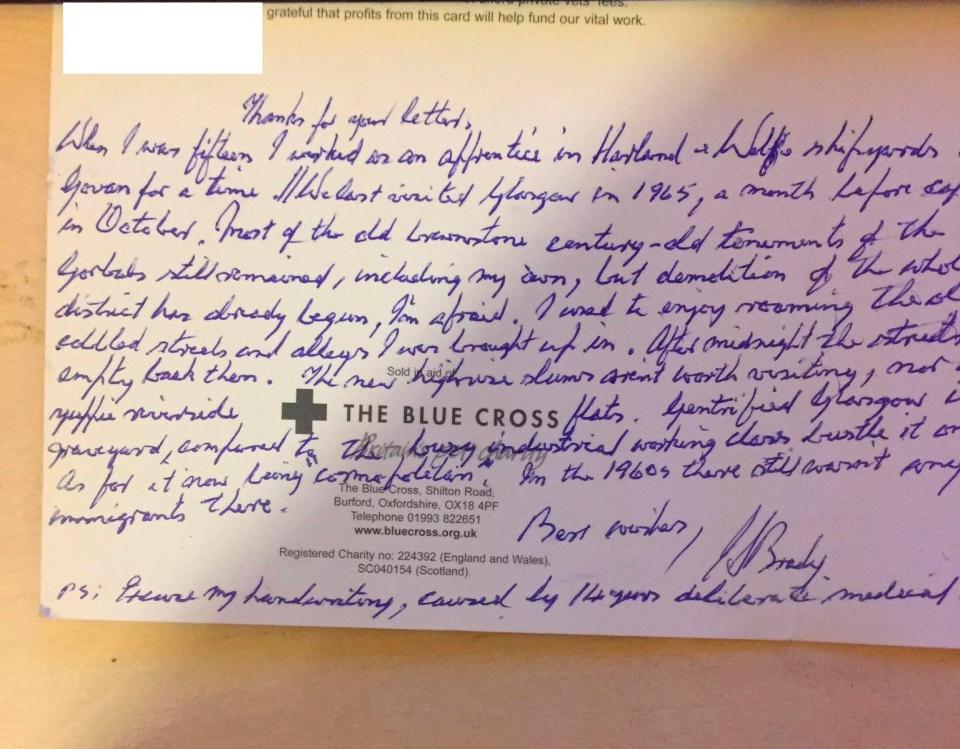 afford private vets' fees.
grateful that profits from this card will help fund our vital work.
Thanks for your letter.
When I was fifteen I worked as an apprentice in Harland & Wolff shipyards
Govan for a time. We last visited Glasgow in 1965, a month before
in October. Most of the old brownstone century-old tenements of the
Gorbals still remained, including my own, but demolition of the
district has already begun, I'm afraid. I used to enjoy roaming the
cobbled streets and alleys I was brought up in. After midnight the streets
empty back then. The new highrise slums arent worth visiting, nor
Sold in aid of
yuppie riverside flats. Gentrified Glasgow
THE BLUE CROSS
graveyard, compared to the industrial working class bustle it
Britain's pet charity
As for it now being "cosmopolitan". In the 1960s there still wasnt
immigrants there.
The Blue Cross, Shilton Road,
Burford, Oxfordshire, OX18 4PF
Telephone 01993 822651
www.bluecross.org.uk
Best wishes,
Brady
Registered Charity no: 224392 (England and Wales),
SC040154 (Scotland).
PS: Excuse my handwriting, caused by 14 years deliberate medical